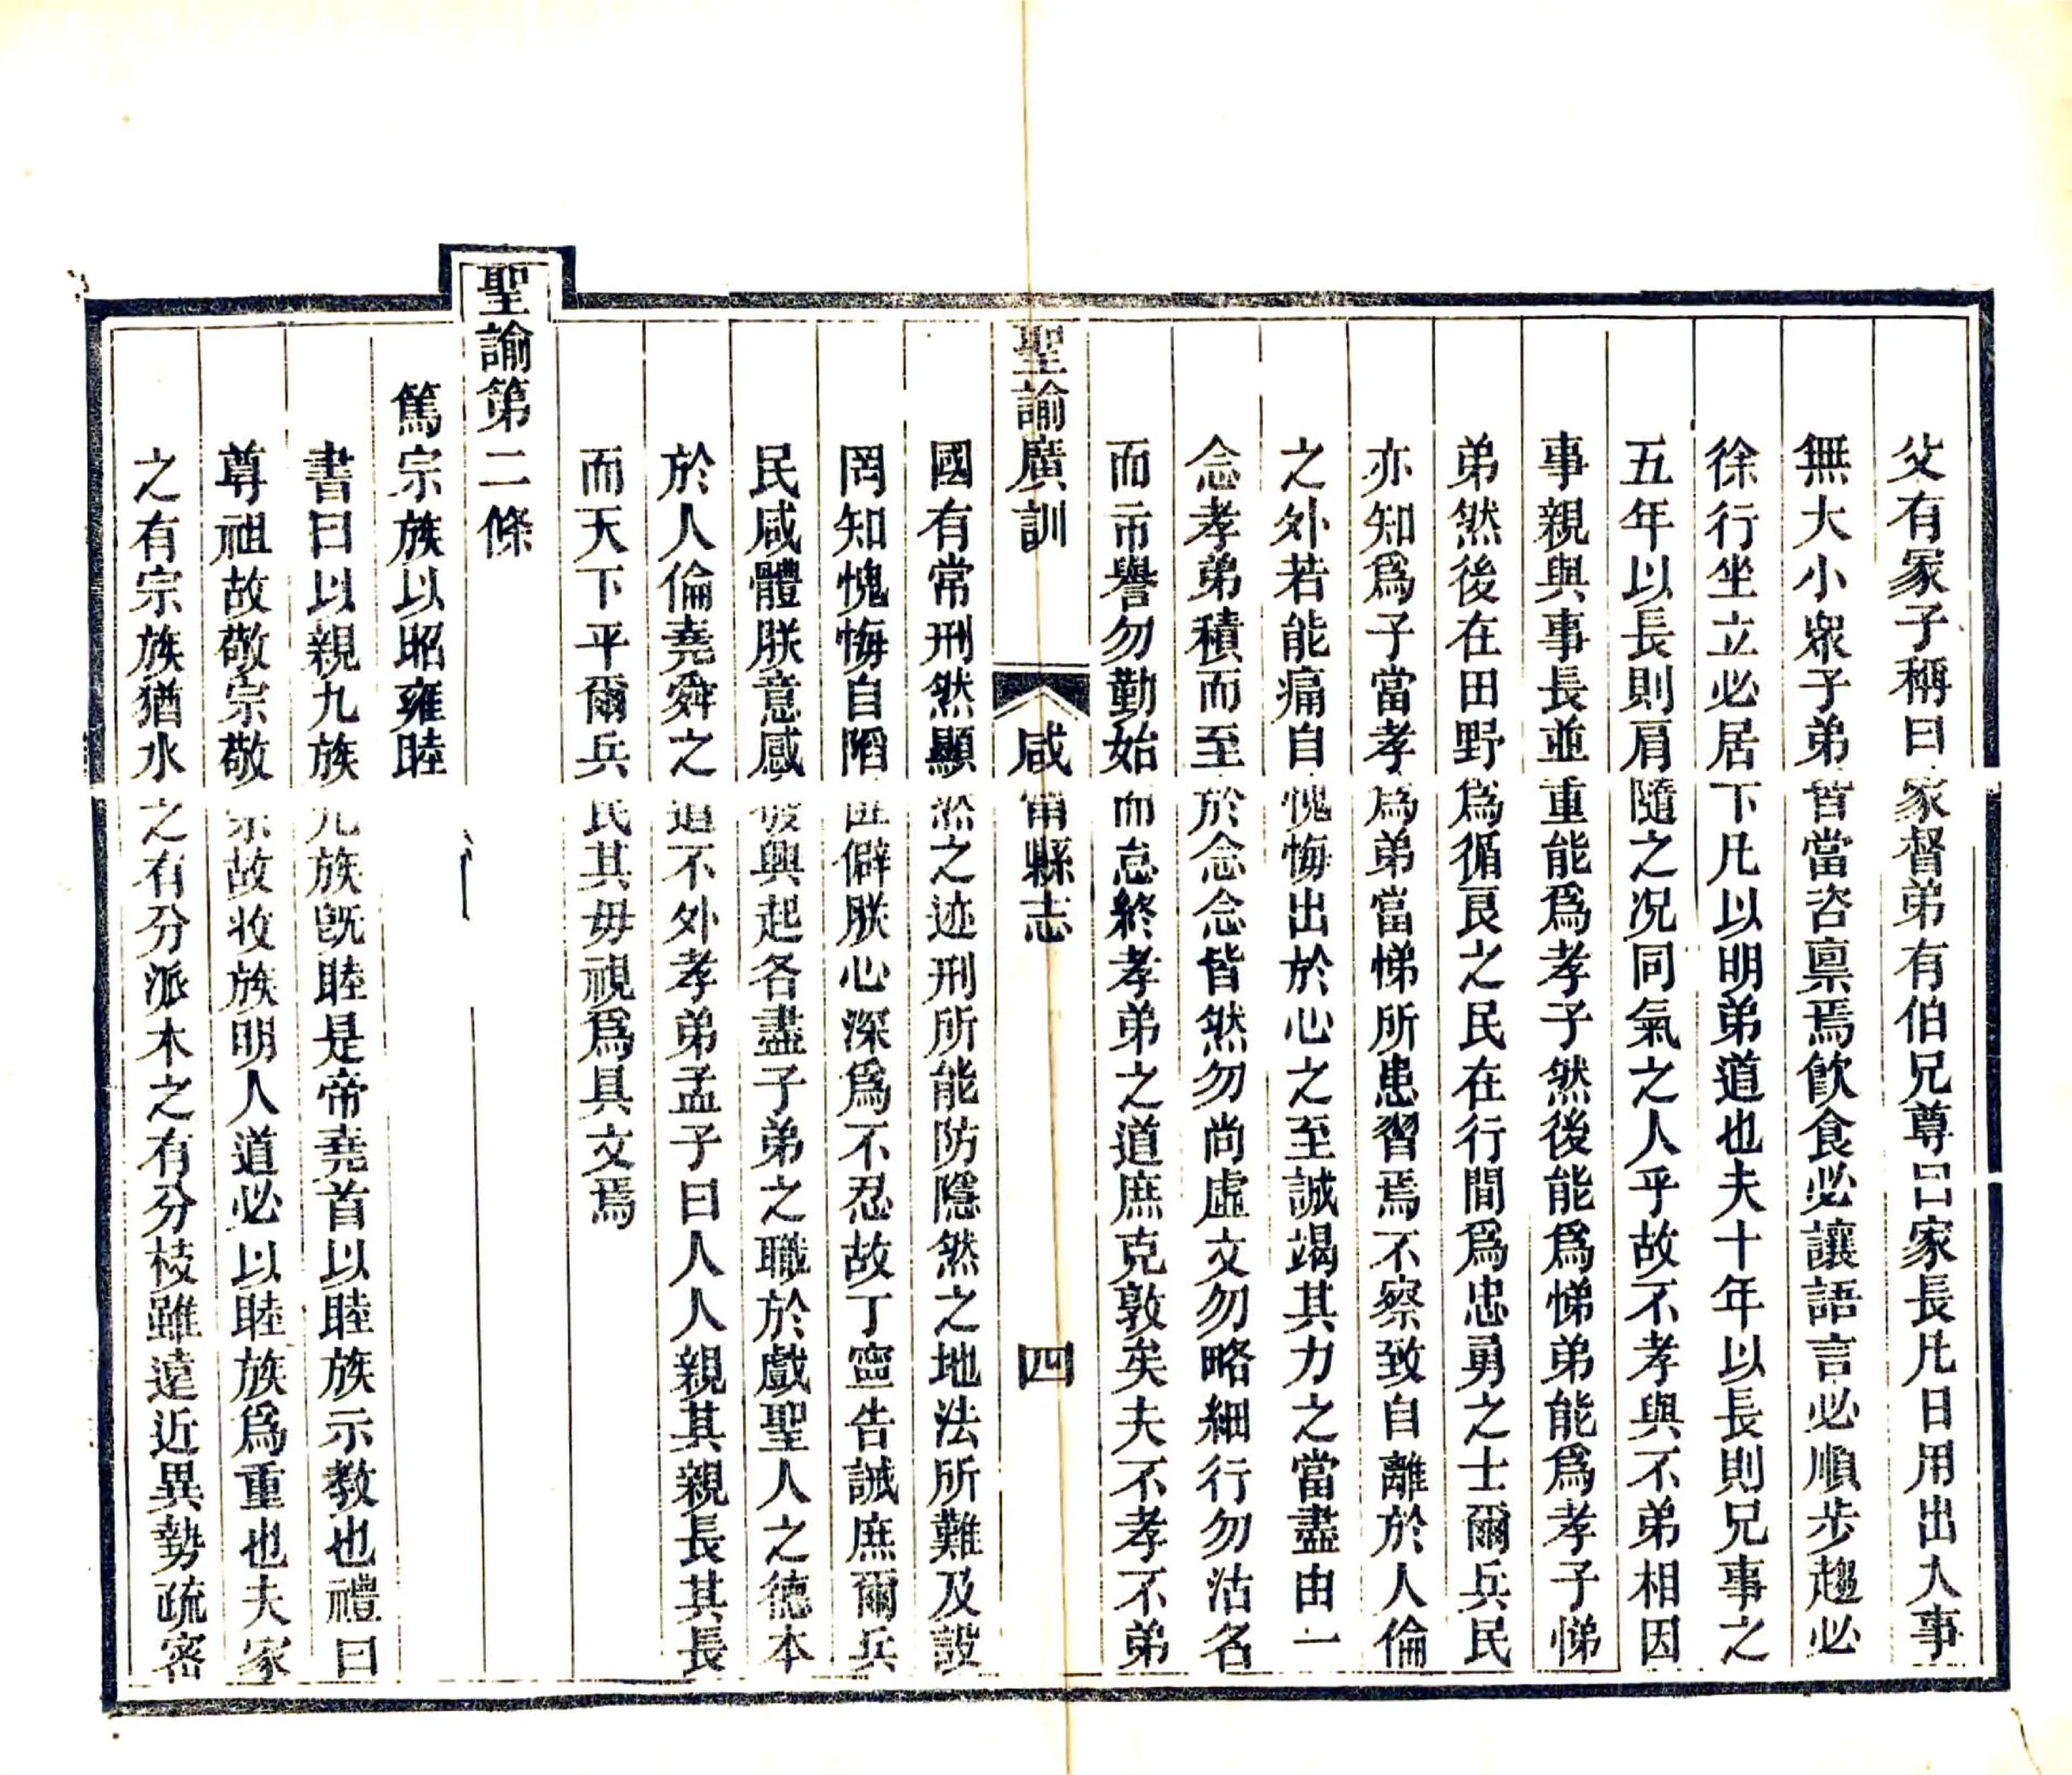 父有冢子稱曰家督弟有伯兄尊曰家長凡日用出入事
無大小眾子弟皆當咨稟焉飮食必讓語言必順步趨必
徐行坐立必居下凡以明弟道也夫十年以長則兄事之
五年以長則肩隨之况同氣之人乎故不孝與不弟相因
事親與事長並重能爲孝子然後能爲悌弟能爲孝子悌
弟然後在田野爲循良之民在行間爲忠勇之士爾兵民
亦知爲子當孝爲弟當悌所患習焉不察致自離於人倫
之外若能痛自愧悔出於心之至誠竭其力之當盡由一
念孝弟積而至於念念皆然勿尚虛文勿略細行勿沽名
而市譽勿勤始而怠終孝弟之道庶克敦矣夫不孝不弟
聖諭廣訓 咸甯縣志 四
國有常刑然顯然之迹刑所能防隱然之地法所難及設
罔知愧悔自陷匪僻朕心深爲不忍故丁寍告誡庶爾兵
民咸體朕意感發興起各盡子弟之職於戲聖人之德本
於人倫堯舜之道不外孝弟孟子曰人人親其親長其長
而天下平爾兵民其毋視爲具文焉
聖諭第二條
篤宗族以昭雍睦
書曰以親九族九族旣睦是帝堯首以睦族示教也禮曰
尊祖故敬宗敬宗故收族明人道必以睦族爲重也夫家
之有宗族猶水之有分派木之有分枝雖遠近異勢疏密